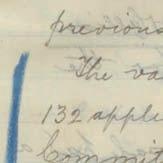 previous
The va
132 appli
Comm